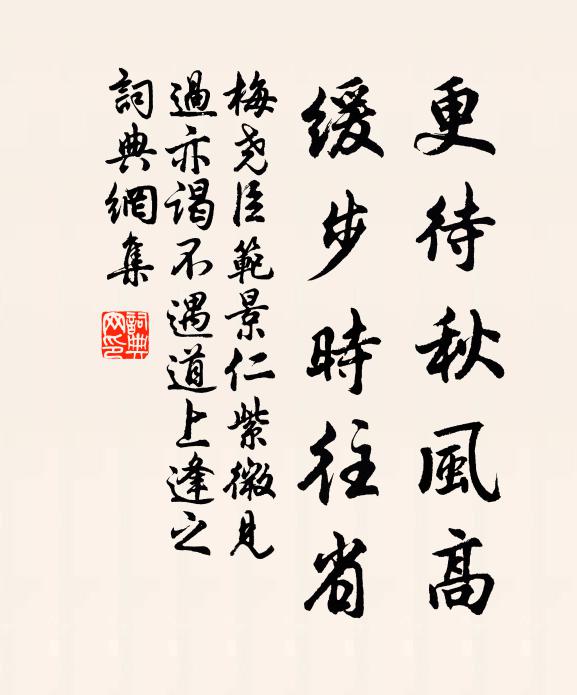 更待秋風高
緩步時往省
梅堯臣範景仁紫微見
過亦謁不遇道上逢之
詞典網集
詞典网印